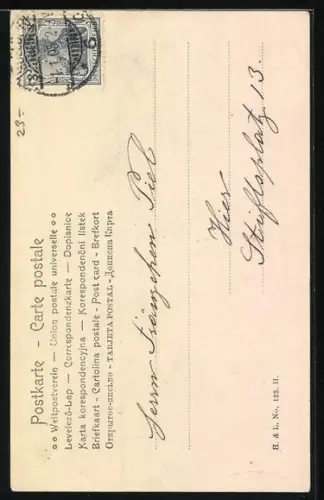 Postkarte - Carte postale
Weltpostverein — Union postale universelle
Levelező-Lap — Correspondenzkarte — Dopisnice
Karta korespondencyjna — Korespondenční lístek
Briefkaart - Cartolina postale - Post card - Brefkort
Открытое-письмо - TARJETA POSTAL - Дописна Карта
Herrn Fränzchen Piel
Hier
Stiftsplatz 13.
H. & L. No. 123. H.
23-